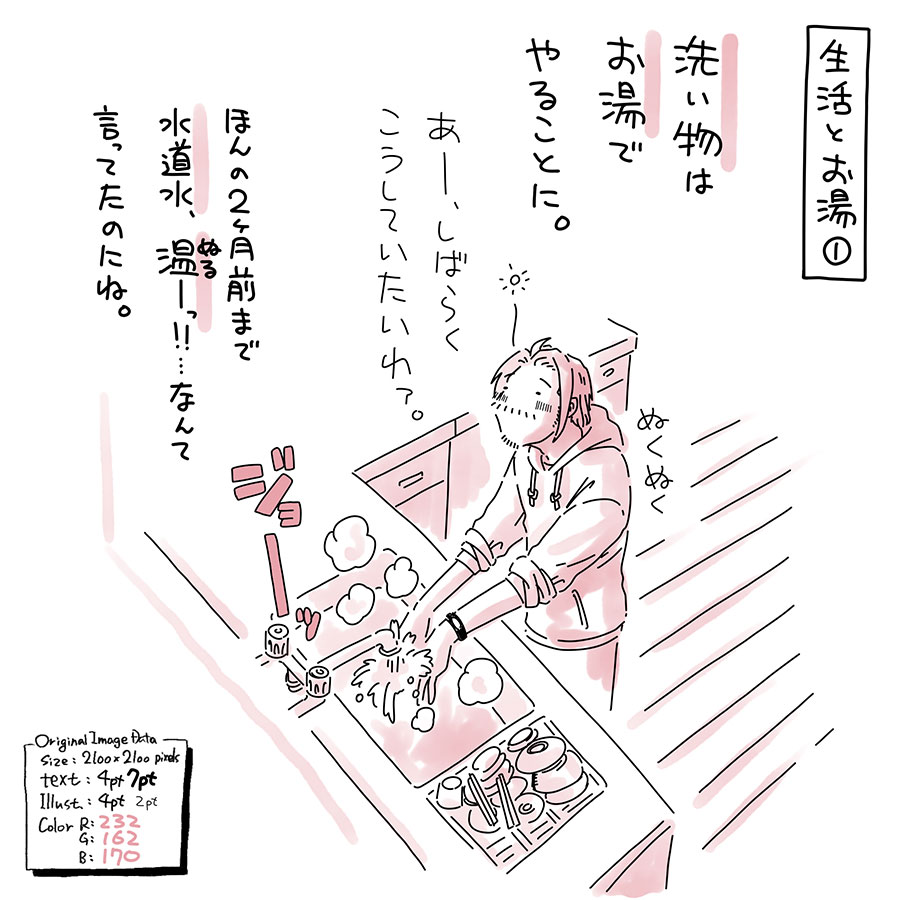 生活とお湯①
洗い物は
お湯で
やることに。
あー、しばらく
こうしていたいわァ。
ほんの2ヶ月前まで
水道水、温ーっ!!…なんて
ぬる
言ってたのにね。
ぬくぬく
ジョーッ
Original Image Data
Size : 2100×2100 pixels
text : 4pt 7pt
Illust. : 4pt 2pt
Color R: 232
G: 162
B: 170